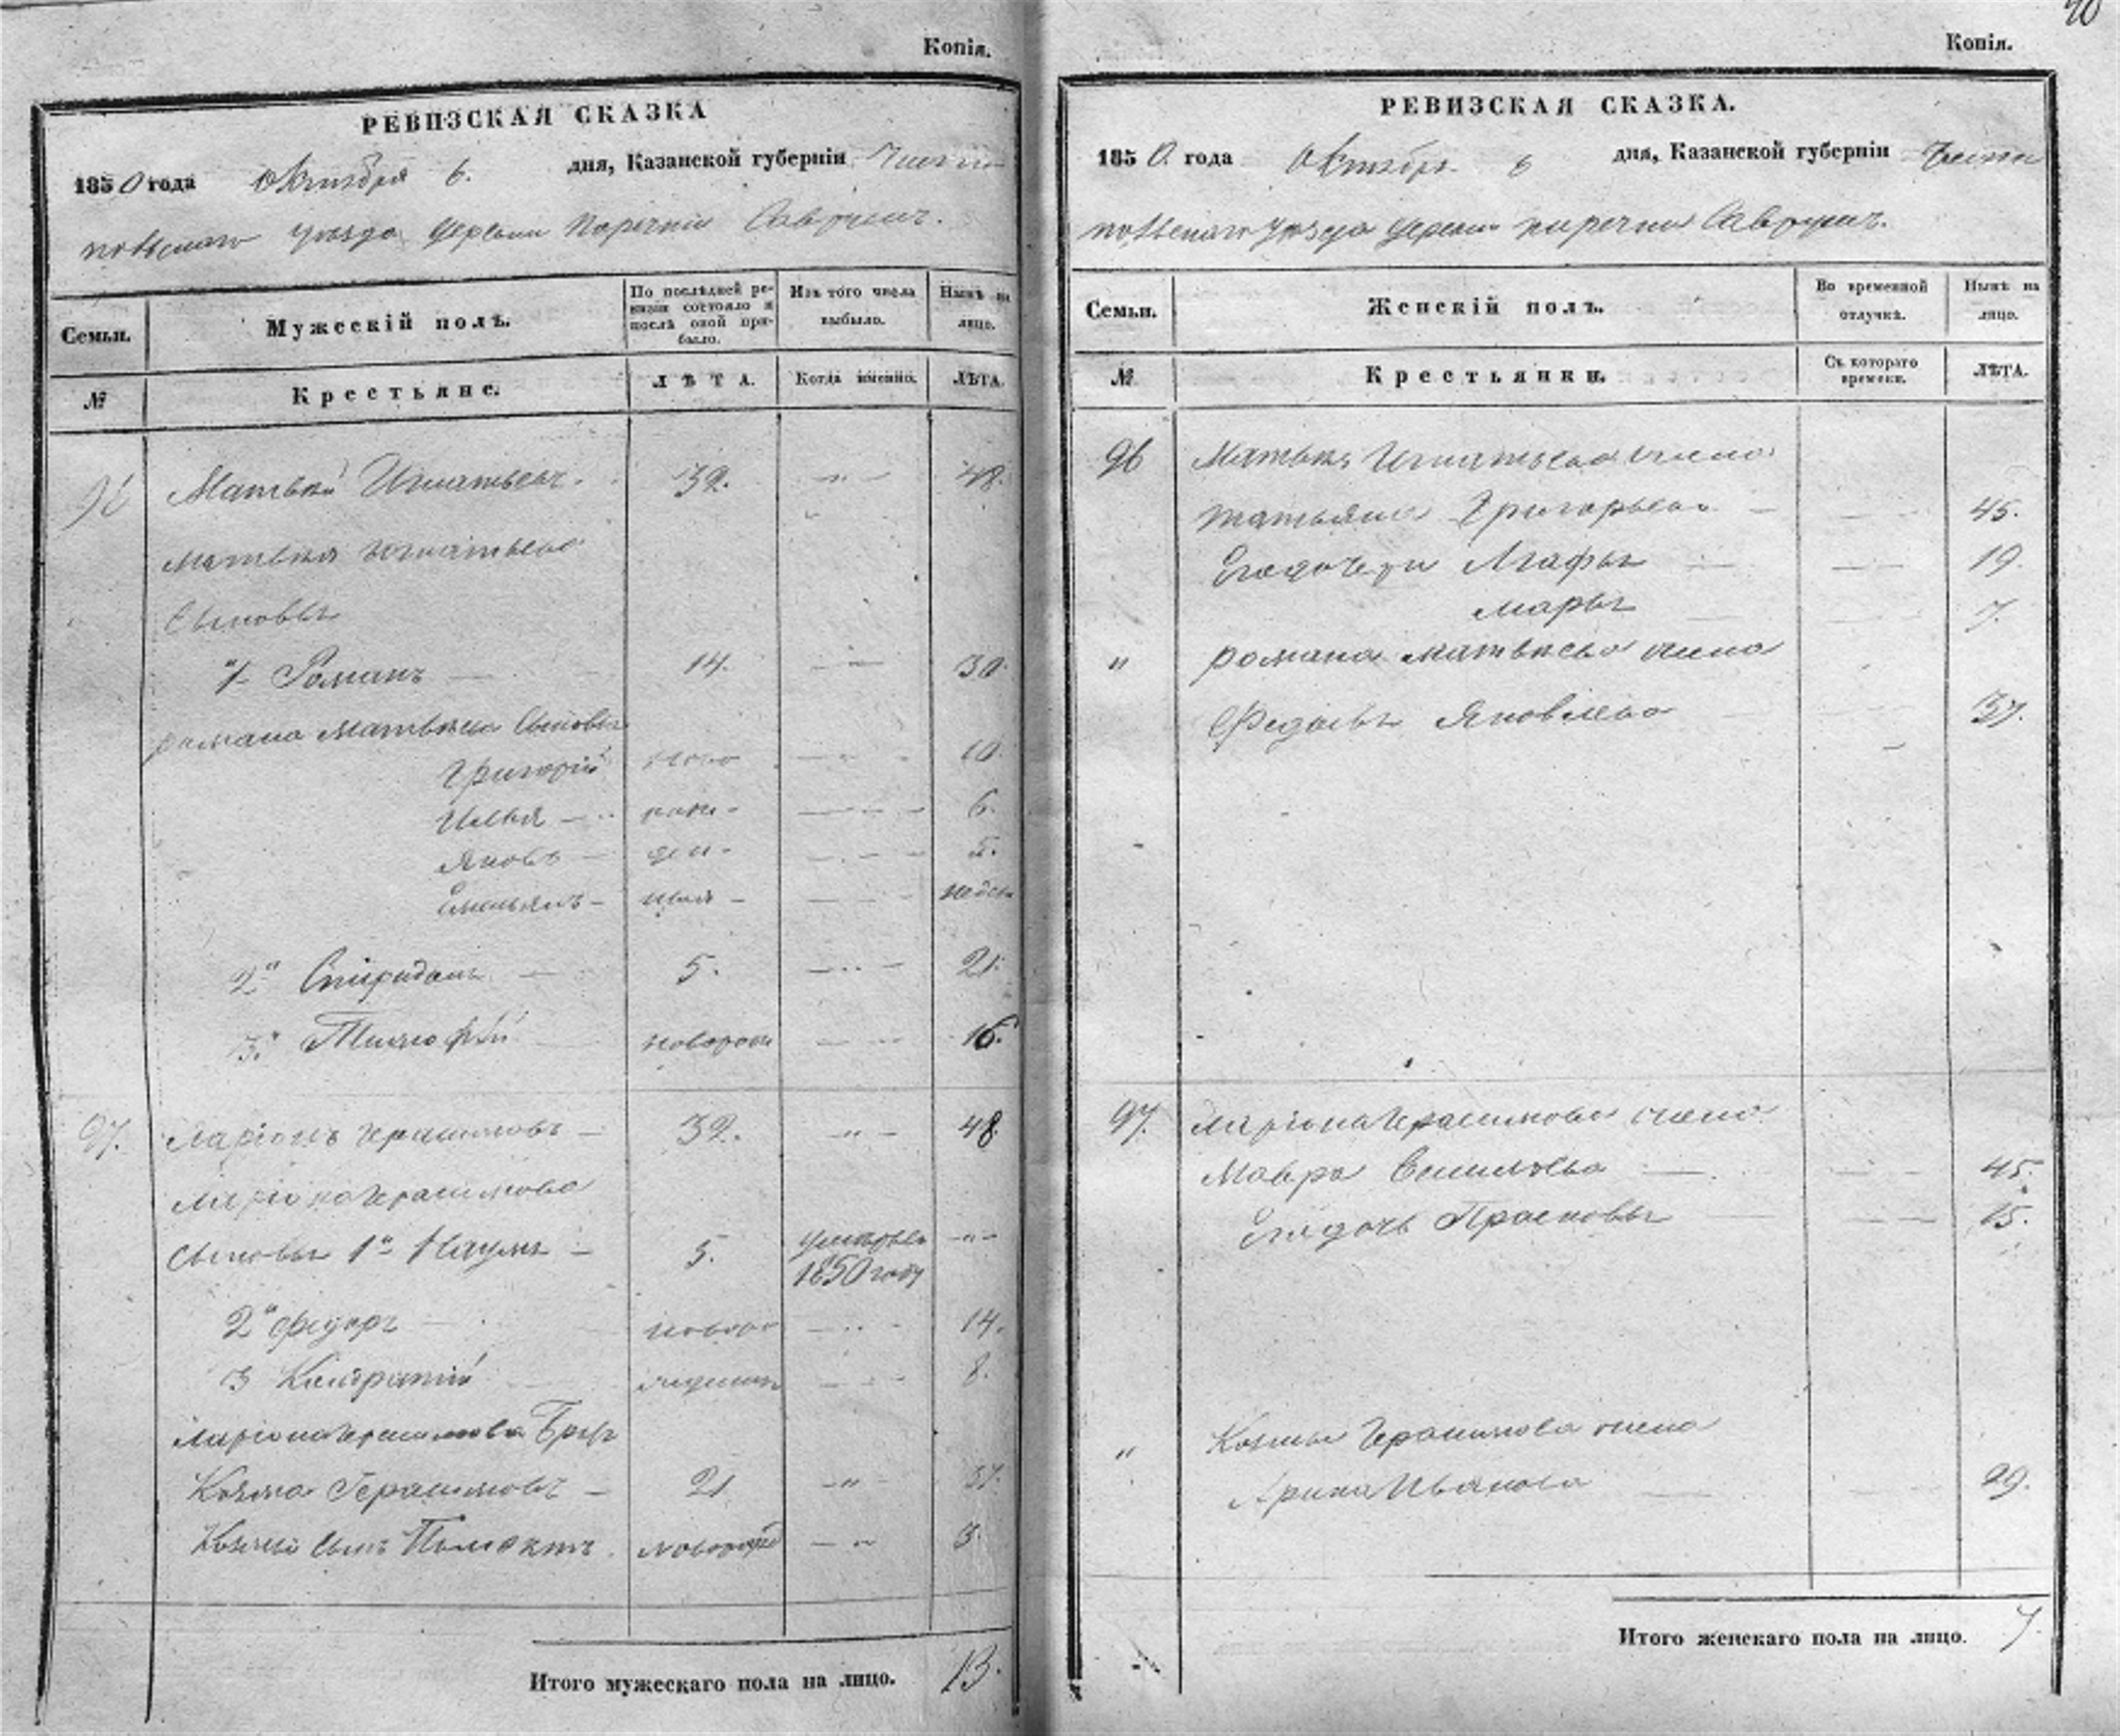 40
Копія.
РЕВИЗСКАЯ СКАЗКА
1850 года октября 6. дня, Казанской губерніи Чисто
польскаго уѣзда деревни Савруши.
Семьи.
Мужескій полъ.
По послѣдней ревизіи состояло и послѣ оной прибыло.
Изъ того числа выбыло.
Нынѣ на лицо.
№
Крестьяне.
ЛѢТА.
Когда именно.
ЛѢТА.
96 Матвѣй Игнатьевъ. 32. -"- 48.
Матвѣя Игнатьева
Сыновья
1й Романъ 14. 30.
Романа Матвѣева Сыновья
Григорій ново 10.
Илья рож- 6.
Яковъ ден- 5.
Емельянъ ныя недел
2й Спиридонъ 5. 21.
3й Тимофѣй новорож 16.
97. Ларіонъ Герасимовъ 32. -"- 48
Ларіона Герасимова
Сыновья 1й Наумъ 5. умеръ въ 1850 году -"-
2й Федоръ новоро 14.
3 Кондратій 8.
Ларіона Герасимова Братъ
Козма Герасимовъ 21 -"- 37.
Козмы сынъ новорож 3.
Итого мужескаго пола на лицо. 13.
Копія.
РЕВИЗСКАЯ СКАЗКА.
1850. года Октября 6 дня, Казанской губерніи Чисто
польскаго уѣзда деревни Савруши.
Семьи.
Женскій полъ.
Во временной отлучкѣ.
Нынѣ на лицо.
№
Крестьянки.
Съ котораго времени.
ЛѢТА.
96 Матвѣя Игнатьева жена
Татьяна Григорьева 45.
Его дочери Агафья 19.
Марья 7.
" Романа Матвѣева жена
Федосья Яковлева 37.
97. Ларіона Герасимова жена
Мавра 45.
Его дочь Прасковья 15.
" Козмы Герасимова жена
Арина Иванова 29.
Итого женскаго пола на лицо. 7